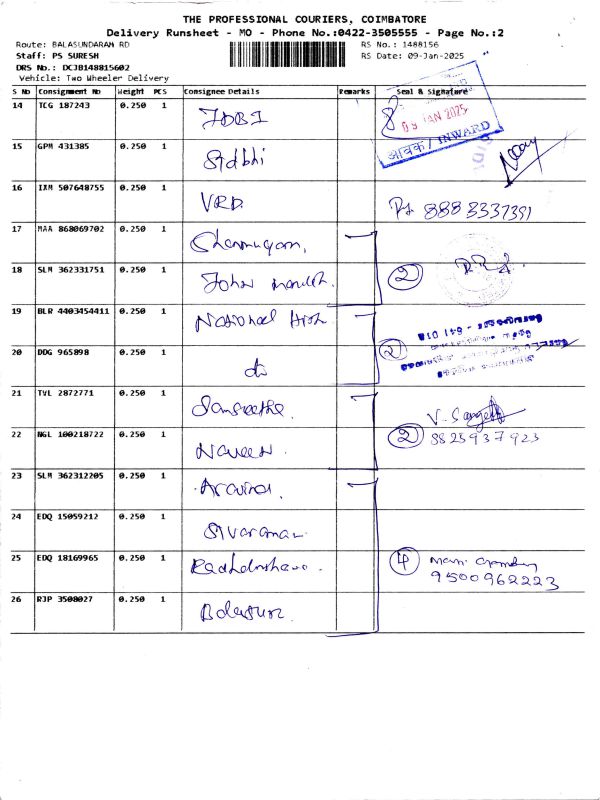 THE PROFESSIONAL COURIERS, COIMBATORE
Delivery Runsheet - MO - Phone No.:0422-3505555 - Page No.:2
Route: BALASUNDARAM RD
RS No.: 1488156
Staff: PS SURESH
RS Date: 09-Jan-2025
DRS No.: DCJB148815602
Vehicle: Two Wheeler Delivery
S No Consignment No Weight PCS Consignee Details Remarks Seal & Signature
14 TCG 187243 0.250 1 IDBI
8
09 JAN 2025
आवक / INWARD
15 GPM 431385 0.250 1 Sidbhi
16 IXM 507648755 0.250 1 VRD.
888 3337391
17 MAA 868069702 0.250 1 Shanmugam.
18 SLM 362331751 0.250 1 John
2
19 BLR 4403454411 0.250 1 National
20 DDG 965898 0.250 1 do
2
641 018
21 TVL 2872771 0.250 1 Sangeetha.
V. Sangeetha
22 NGL 100218722 0.250 1 Naveen.
2 8825937923
23 SLM 362312205 0.250 1 Aravind.
24 EDQ 15059212 0.250 1 Sivaraman
25 EDQ 18169965 0.250 1
4
9500962223
26 RJP 3508027 0.250 1